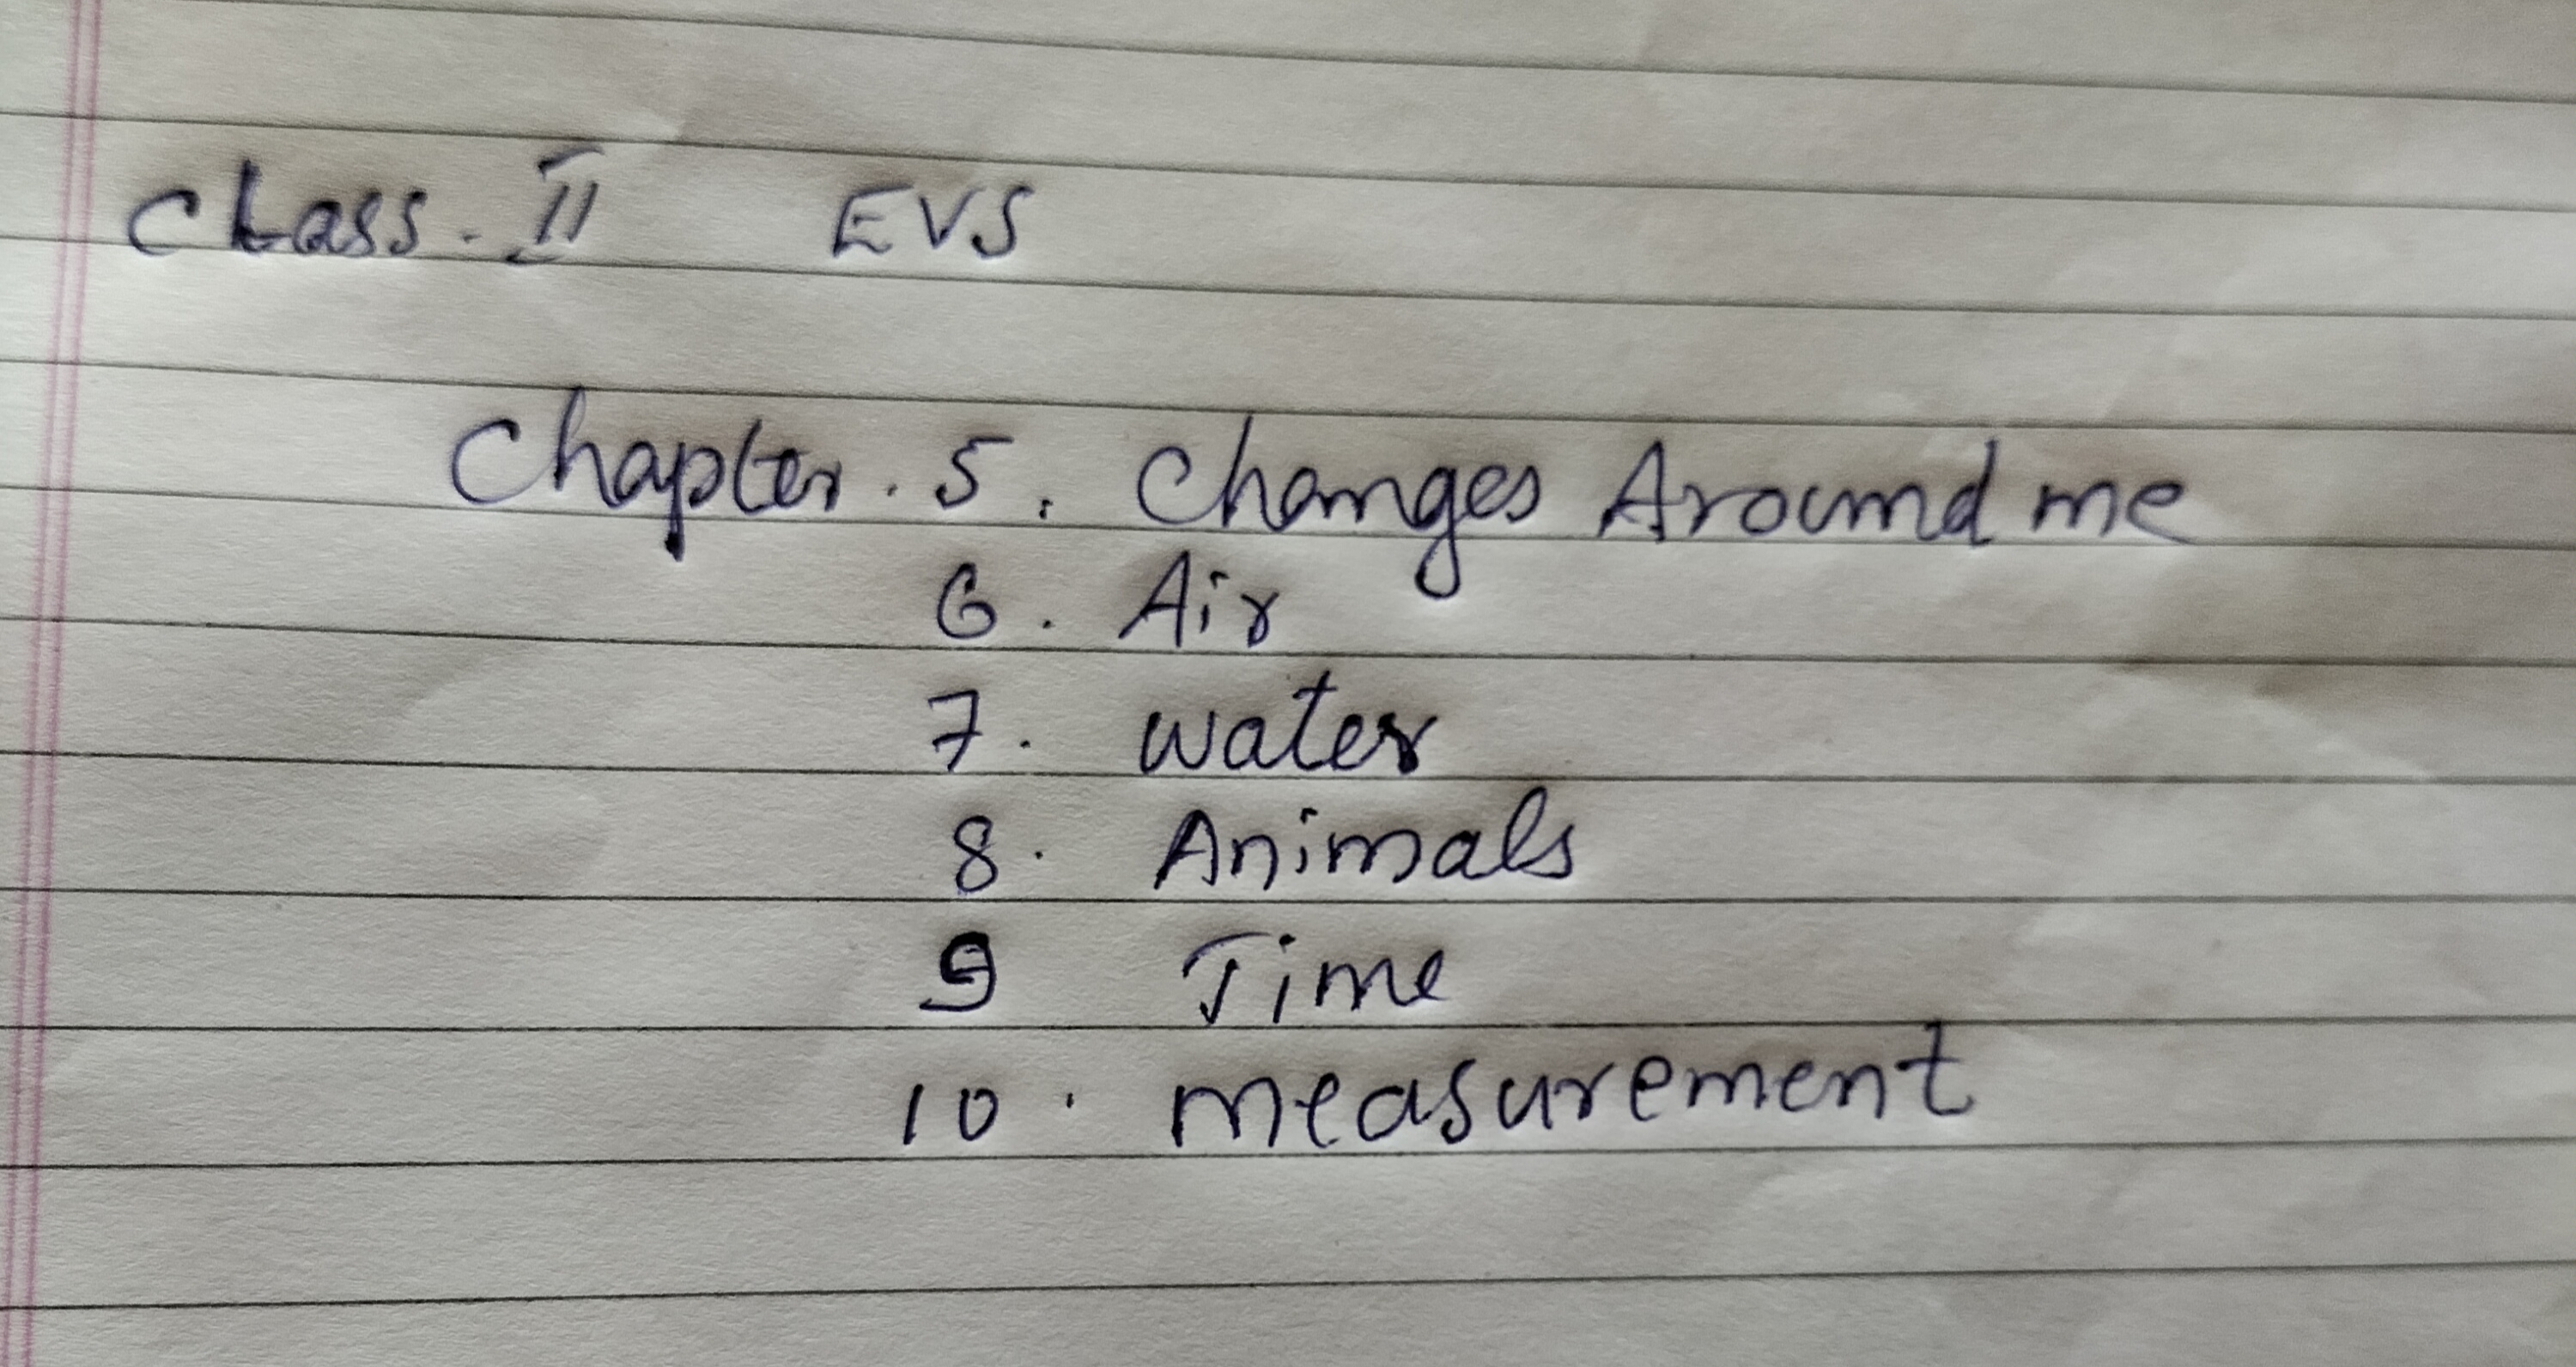 Class. II EVS
Chapter. 5. Changes Around me
6. Air
7. water
8. Animals
9 Time
10. measurement